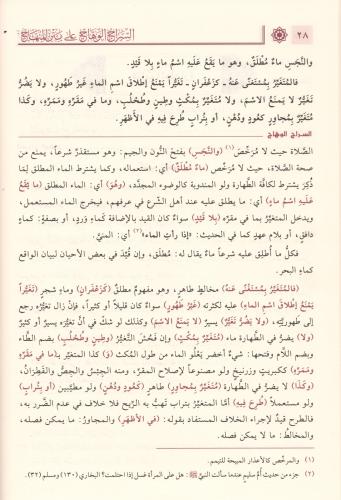 ٢٨ السراج الوهاج على متن المنهاج
والنَّجَسِ مَاءٌ مُطْلَقٌ، وهو ما يَقَعُ عَلَيهِ اسْمُ ماءٍ بِلا قَيْدٍ.
فالمُتَغَيِّرُ بِمُسْتَغْنًى عَنهُ - كَزَعْفَرانٍ - تَغَيُّراً يَمْنَعُ إِطْلاقَ اسْمِ الماءِ غَيرُ طَهُورٍ، ولا يَضُرُّ
تَغَيُّرٌ لا يَمنَعُ الاسْمَ، ولا مُتَغَيِّرٌ بِمُكْثٍ وطِينٍ وطُحْلُبٍ، وما في مَقَرِّهِ ومَمَرِّهِ، وكَذا
مُتَغَيِّرٌ بِمُجاوِرٍ كَعُودٍ ودُهْنٍ، أو بِتُرابٍ طُرِحَ فِيهِ في الأَظْهَرِ.
السراج الوهاج
الصَّلاة حيث لا مُرَخِّصَ(١) (والنَّجَسِ) بفتح النُّون والجيم: وهو مستقذرٌ شرعاً، يمنع من
صحة الصَّلاة، حيث لا مُرَخِّصَ (ماءٌ مُطْلَقٌ) أي: استعماله، وكما يشترط الماء المطلق لما
ذُكِرَ يشترط لكافَّة الطَّهارة ولو المندوبة كالوضوء المجدَّد، (وهُوَ) أي: الماء المطلق (ما يَقَعُ
عَلَيهِ اسْمُ ماءٍ) أي: ما يطلق عليه عند أهل الشرع في عرفهم، فيخرج الماء المستعمل،
ويدخل المتغيّر بما في مقرّه (بِلا قَيْدٍ) سواءٌ كان القيد بالإضافة كماءِ وَردٍ، أو بصفةٍ: كماءٍ
دافقٍ، أو بلام عهدٍ كما في الحديث: «إذا رأتِ الماء»(٢) أي: المنيّ.
فكلُّ ما أُطلِق عليه شرعاً ماءٌ يقال له: مُطلَق، وإن قُيِّدَ في بعض الأحيان لبيان الواقع
كماء البحر.
(فالمُتَغَيِّرُ بِمُسْتَغْنًى عَنْهُ) مخالطٍ طاهرٍ، وهو مفهوم مطلَق (كَزَعْفَرانٍ) وماءِ شجرٍ (تَغَيُّراً
يَمْنَعُ إِطْلاقَ اسْمِ الماءِ) عليه لكثرته (غَيرُ طَهُورٍ) سواءٌ كان قليلاً أو كثيراً، فإنْ زال تغيّره رجع
إلى طَهوريَّته، (ولا يَضُرُّ تَغَيُّرٌ) يسيرٌ (لا يَمنَعُ الاسْمَ) وكذلك لو شكَّ في أنَّ تغيّره يسيرٌ أو كثيرٌ
(ولا) يضرُّ في الطَّهارة ماءٌ (مُتَغَيِّرٌ بِمُكْثٍ) وإن فَحُشَ التَّغيُّر (وطِينٍ وطُحْلُبٍ) بضم الطَّاء
وبضم اللَّام وفتحها: شيءٌ أخضر يَعْلُو الماء من طول المُكث (وَ) كذا المتغيّر بـ(ما في مَقَرِّهِ
ومَمَرِّهِ) ككبريتٍ وزرنيخٍ ولو مصنوعاً لإصلاح المقرّ، ومنه الجِبْسُ والجِصُّ والقَطِرانُ،
(وكَذا) لا يضرُّ في الطَّهارة (مُتَغَيِّرٌ بِمُجاوِرٍ) طاهرٍ (كَعُودٍ ودُهْنٍ) ولو مطيَّبين (أو بِتُرابٍ)
ولو مستعملاً (طُرِحَ فِيهِ) أمَّا المتغيّر بترابٍ تهبُّ به الرّيح فلا خلاف في عدم الضَّرر به،
فالطرح قيدٌ لإجراء الخلاف المستفاد بقوله: (في الأَظْهَرِ) والمجاورُ: ما يمكن فصله،
والمخالط: ما لا يمكن فصله.
(١) والمرخّص كالأعذار المبيحة للتيمم.
(٢) جزء من حديث أمِّ سليمٍ عندما سألت النبيَّ ﷺ: هل على المرأة غسلٌ إذا احتلمت؟ البخاري (١٣٠) ومسلم (٣٢).